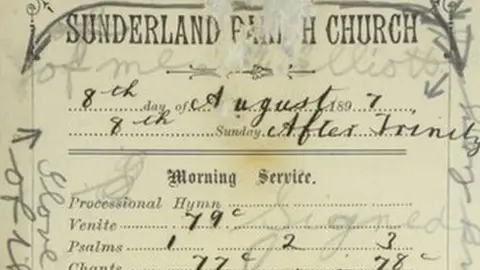 SUNDERLAND PARISH CHURCH
8th day of August 1897
8th Sunday After Trinity
Morning Service.
Processional Hymn
Venite 79c
Psalms 1 2 3
Chants 77c 78c
of me
Signed
Glove
of